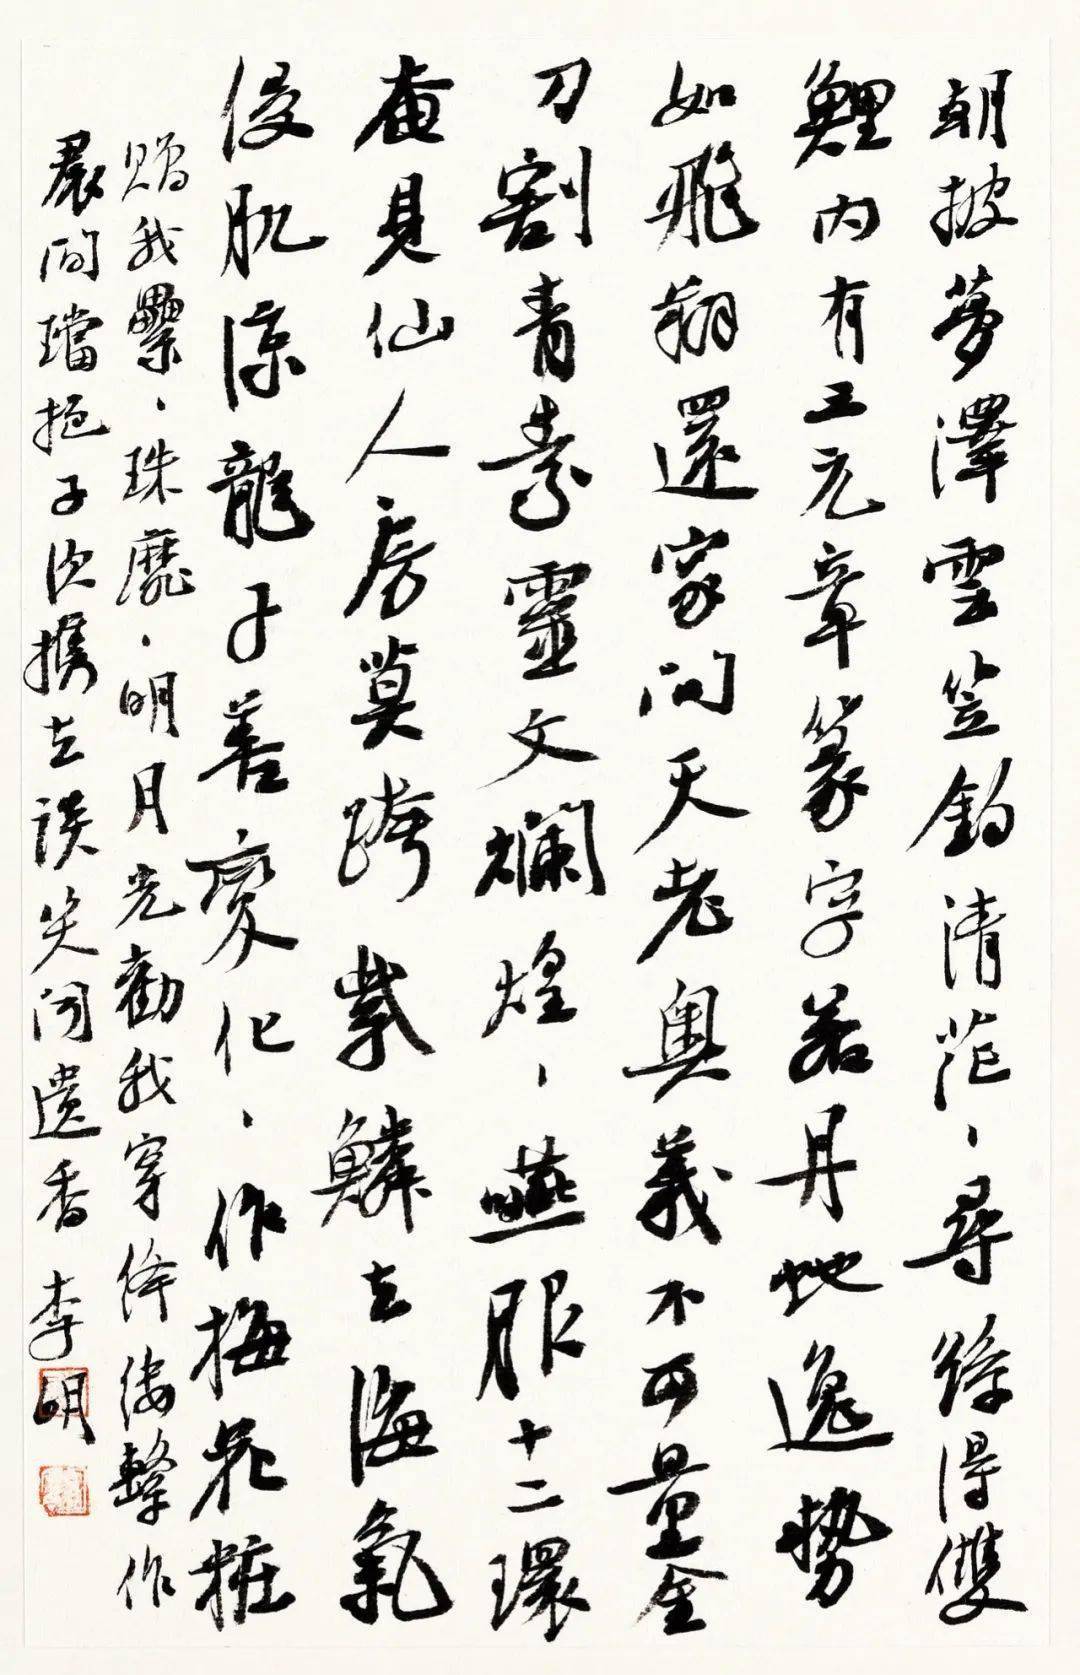 朝披夢澤雲笠釣清茫、尋絲得雙
鯉內有三元章篆字若丹蛇逸勢
如飛翔還家問天老奧義不可量金
刀割青素靈文爛煌、嚥服十二環
奄見仙人房莫跨紫鱗去海氣
侵肌涼龍子善變化、作梅花粧
贈我纍、珠靡、明月光勸我穿絳縷繫作
裙間璫挹子以攜去談笑聞遺香 李明